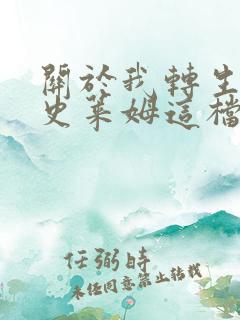 關於我轉生
史萊姆這檔
任弼時
未经同意禁止转载